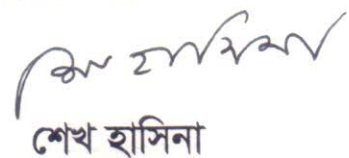 শেখ হাসিনা
শেখ হাসিনা